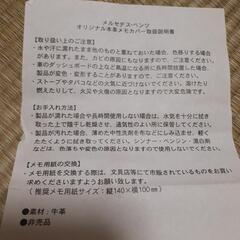 メルセデス・ベンツ
オリジナル本革メモカバー取扱説明書
【取り扱い上のご注意】
・水や汗に濡れたまま色のものと重ねておいた場合、色移りする場合
があります。また、カビの原因にもなりますのでご注意ください。
・車のダッシュボードの上など高温になる場所に長時間放置した場合、
製品が変形、変色することがありますのでご注意ください。
・ストーブやタバコなどの火気に近づけないでください。
燃えやすいので、火災や火傷の原因となりますので大変危険です。
【お手入れ方法】
・製品が濡れた場合や長時間使用しない場合は、水気を十分に拭き
取った上で陰干しし、通気性のよい所に保管してください。
・製品が汚れた場合、薄めた中性洗剤を布などにしみ込ませ、軽く
たたくようにして汚れを落としてください。シンナー・ベンジン・漂白剤
などは、色落ちや変色の原因となりますので、使用しないでください。
【メモ用紙の交換】
・メモ用紙を交換する際は、文具店等にて市販されているものをお買
い求めくださいますようお願い致します。
(推奨メモ用紙サイズ:縦140×横100㎜)
●素材:牛革
●非売品